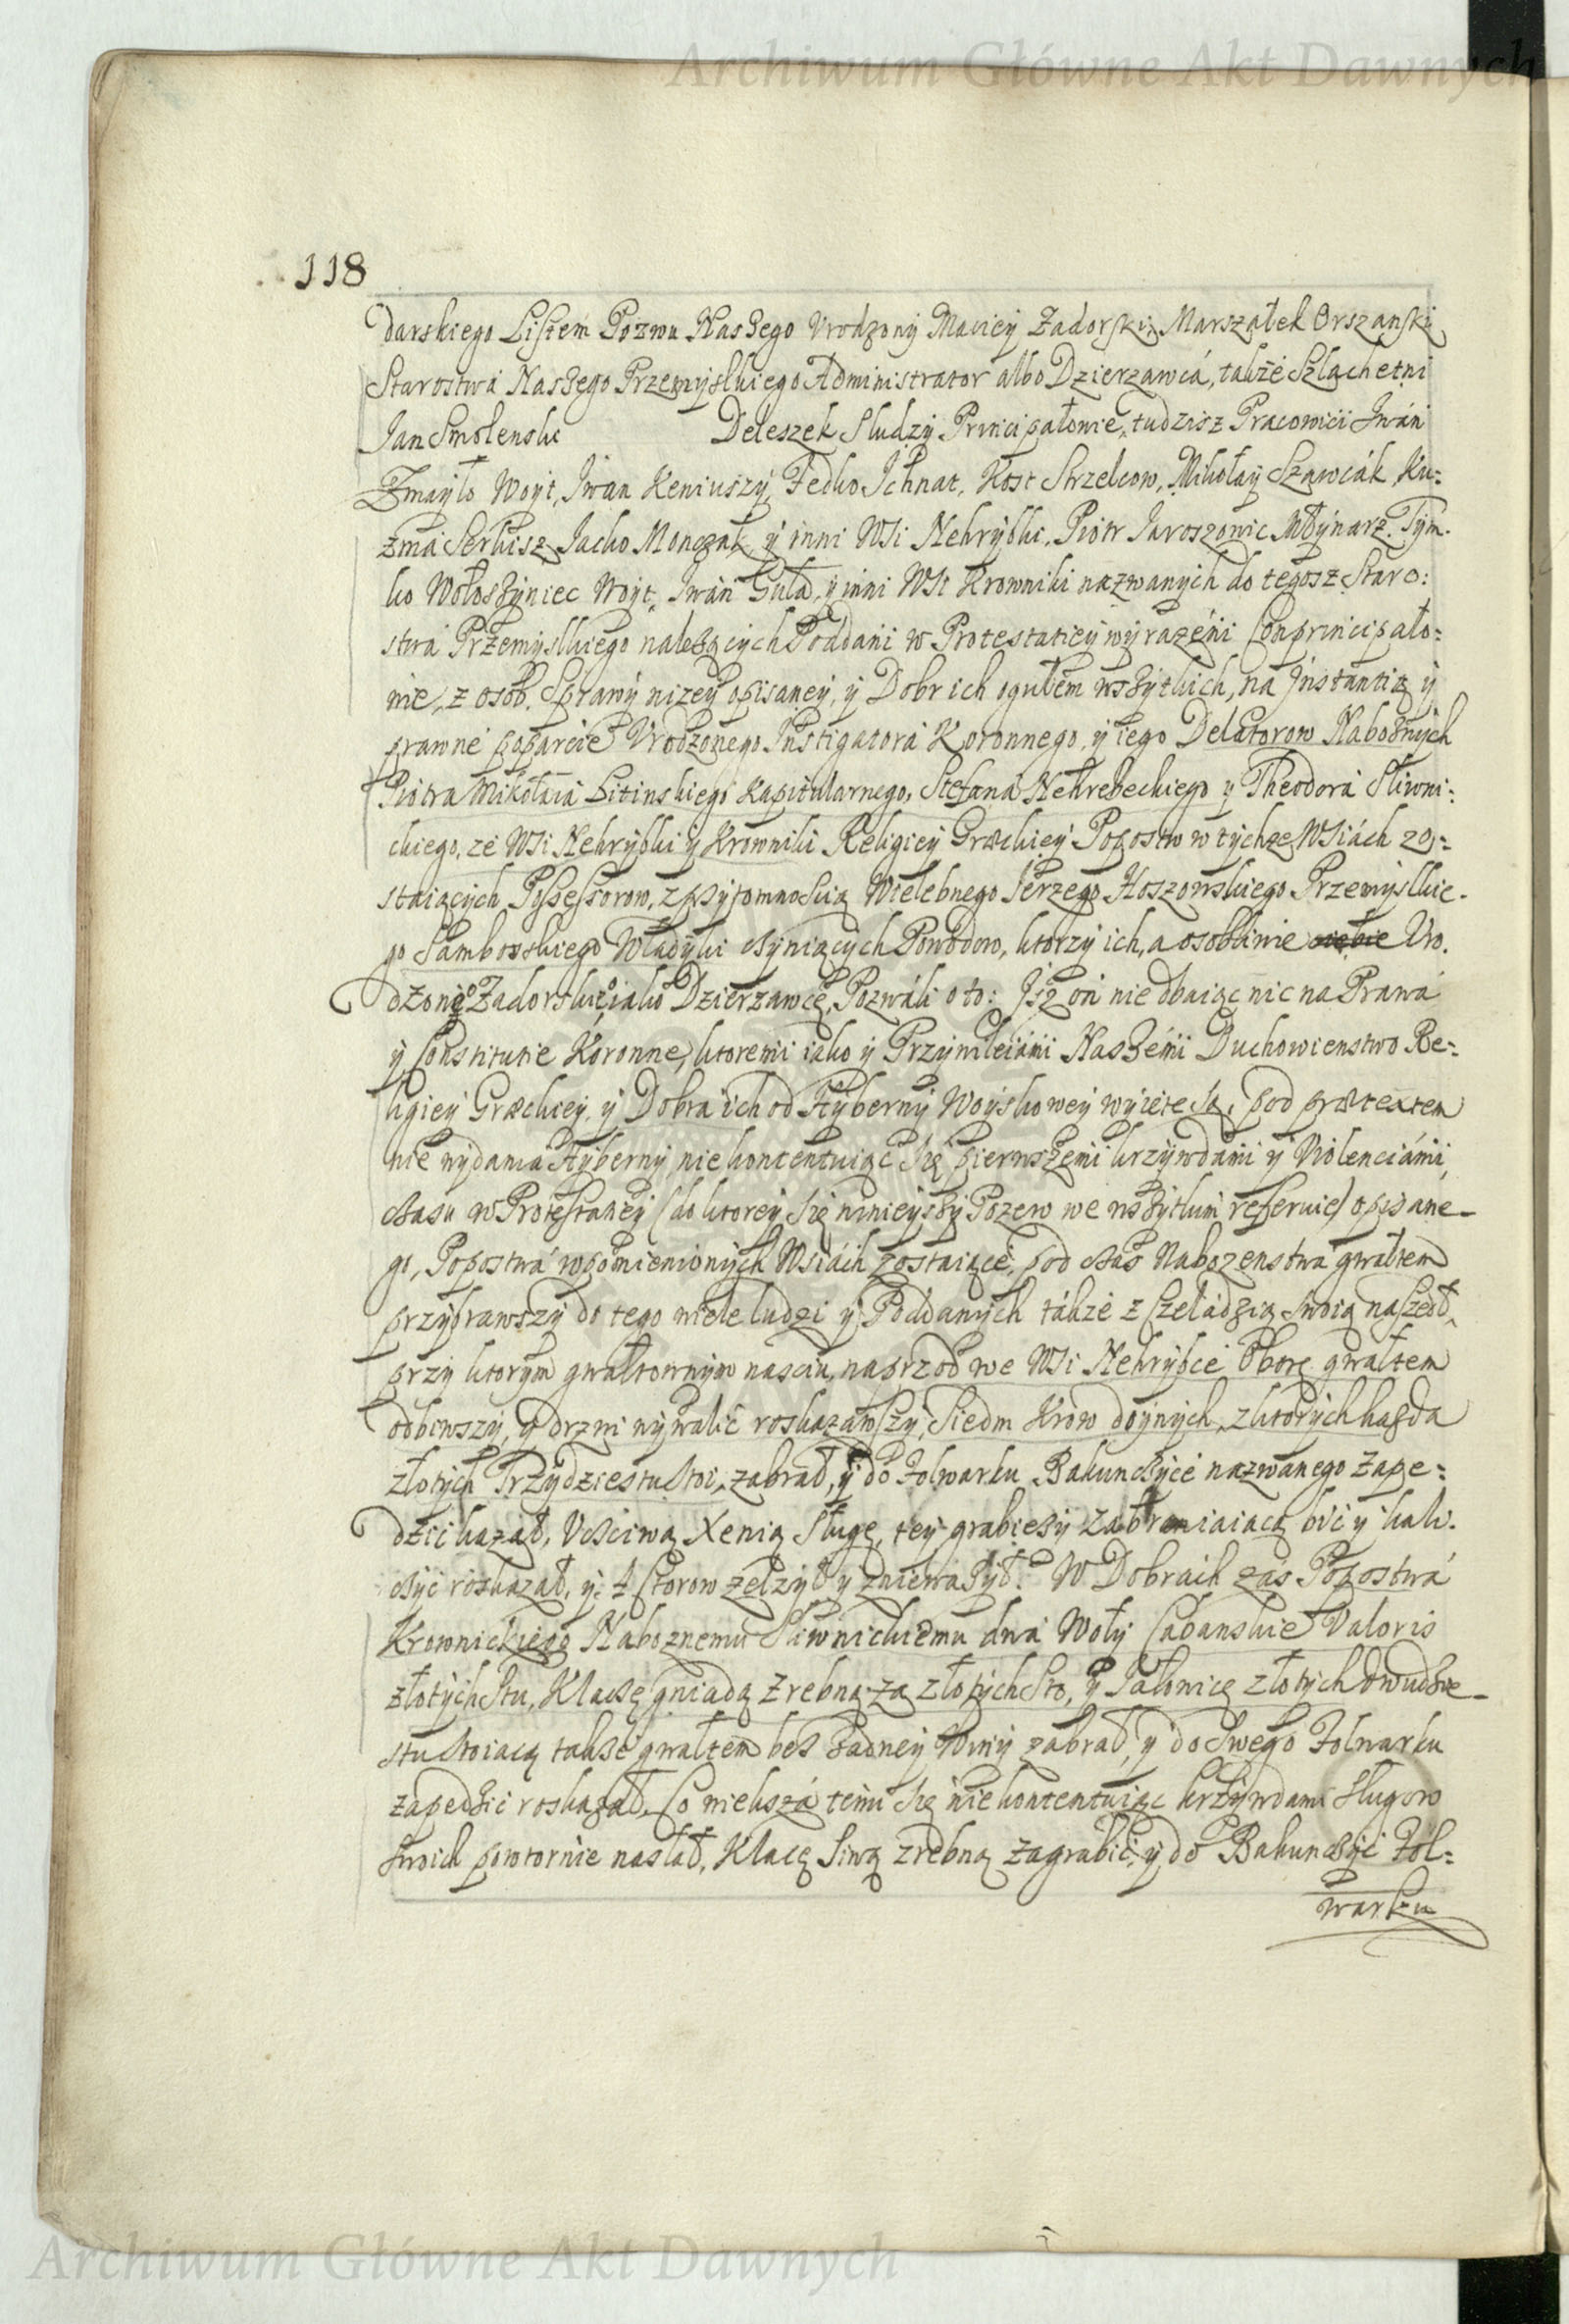 Archiwum Główne Akt Dawnych
118
darskiego Listem Pozwu Naszego Vrodzony Maciey Zadorski, Marszałek Orszanski
Starostwa Naszego Przemyslkiego Administrator albo Dzierzawcá, także Szlachetni
Jan Smolenski Deleszek Słudzy Principałowie, tudzisz Pracowici Iwán
Zmayło Woyt, Iwan Keniuszy, Fedko Ichnat, Kost Strzelcow, Mikołay Szawcák, Ku=
zmá Serkisz, Jacko Monczak, y inni WSi Nehrybki, Piotr Jaroszowic Młynarz, Tym-
ko Wołoszyniec Woyt, Iwán Gułá, y inni WSi Krowniki nazwanych do tegosz Staro=
stwá Przemyslkiego należących Poddáni w Protestatiey wyrażéni Conprincipało=
wie, z osób, Sprawy nizey opisáney, y Dobr ich ogułem wszytkich, na Jnstantią y
prawné poparcié Vrodzonego Instigatorá Koronnego, y iego Delatorow Nabożnych
Piotra Mikołaiá Litinskiego Kapitularnego, Stefaná Nehrebeckiego y Theodorá Sliwni=
ckiego, zé WSi Nehrybki y Krowniki Religiey Græckiey Popostw w tychze WSiách zos=
staiących Possessorow, z przytomnoscią Wielebnego Jerzego Hoszowskiego Przemyslkie-
go Samborskiego Władyki czyniących Powodow, ktorzy ich, a osobliwie Vro-
dzonego Zadorskiego iako Dzierzawcę, Pozwáli o to: Jsz on nie dbaiąc nic na Prawá
y Constitutie Koronne, ktoremi iako y Przywileiámi Naszémi Duchowienstwo Re=
ligiey Græckiey, y Dobra ich od Hyberny Woyskowey wyięte są, pod prætextem
nie wydania Hyberny, nie kontentuiąc się pierwszemi krzywdámi y Violenciámi,
czasu w Protestatiey (do ktorey się ninieyszy Pozew we wszytkim referuie) opisane-
go, Popostwá w pomienionych Wsiách zostaiącé, pod czas Nabozenstwá gwałtem
przybrawszy do tego wiele ludzi y Poddanych tákże z Czeládzią swoią naszedł,
przy ktorym gwałtownym nasciu, naprzod we WSi Nehrybce Oborę gwałtem
odbiwszy, y drzwi wywalić roskazawszy, Siedm Krow doynych, z ktorych kazda
złotych Trzydziestu stoi, zabrał, y do Folwarku Bakunczyce nazwanego zapę=
dzić kazał, Vcciwą Xenią sługę, tey grabieży zabraniaiącą bić y kali-
czyć roskazał, y zelzył y zniewazył. W Dobrach zás Popostwá
Krownickiego Nábożnemu Sliwnickiemu dwá Woły Cabanskie Valoris
złotych stu, Klaczę gniadą zrebną za złotych sto, y Jałowicę złotych dwudzie-
stu stoiącą takze gwałtem bez zadney winy zabrał, y do swego Folwarku
zapędzić roskazał, Co większá tému się nie kontentuiąc krzywdami sług swo
swoich powtornie nasłał, Klaczę Siwą zrebną zagrabić, y do Bakunczyc Fol=
warku
Archiwum Główne Akt Dawnych